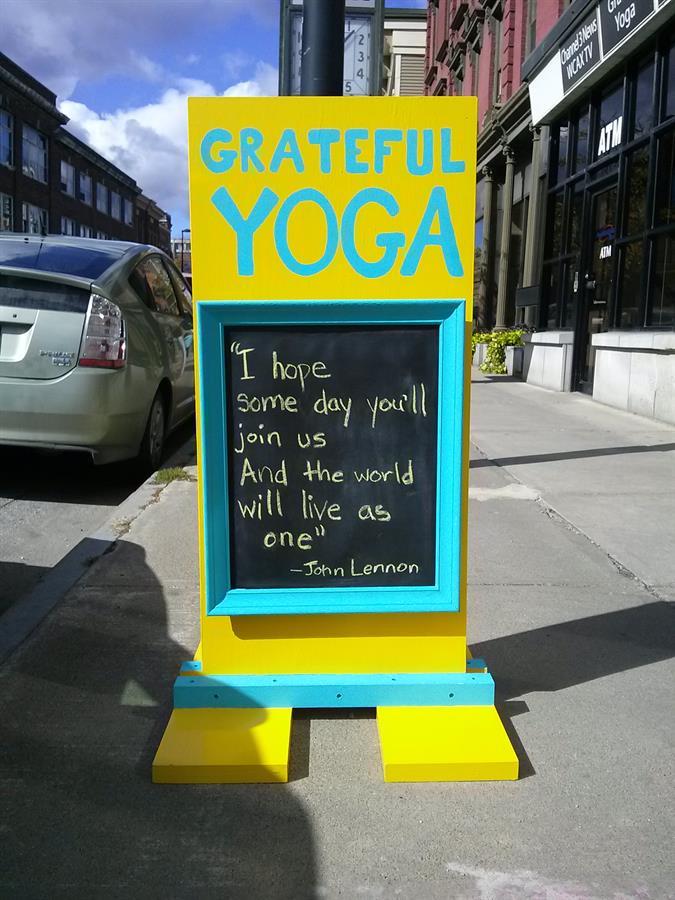 GRATEFUL
YOGA
"I hope
some day you'll
join us
And the world
will live as
one"
-John Lennon
Channel 3 News
WCAX TV
Yoga
ATM
ATM
2
3
4
5